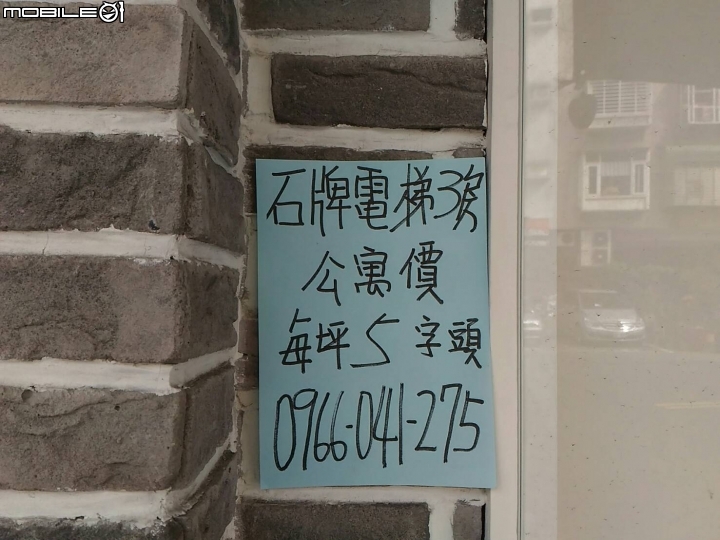 MOBILE01
石牌電梯3房
公寓價
每坪5字頭
0966-041-275